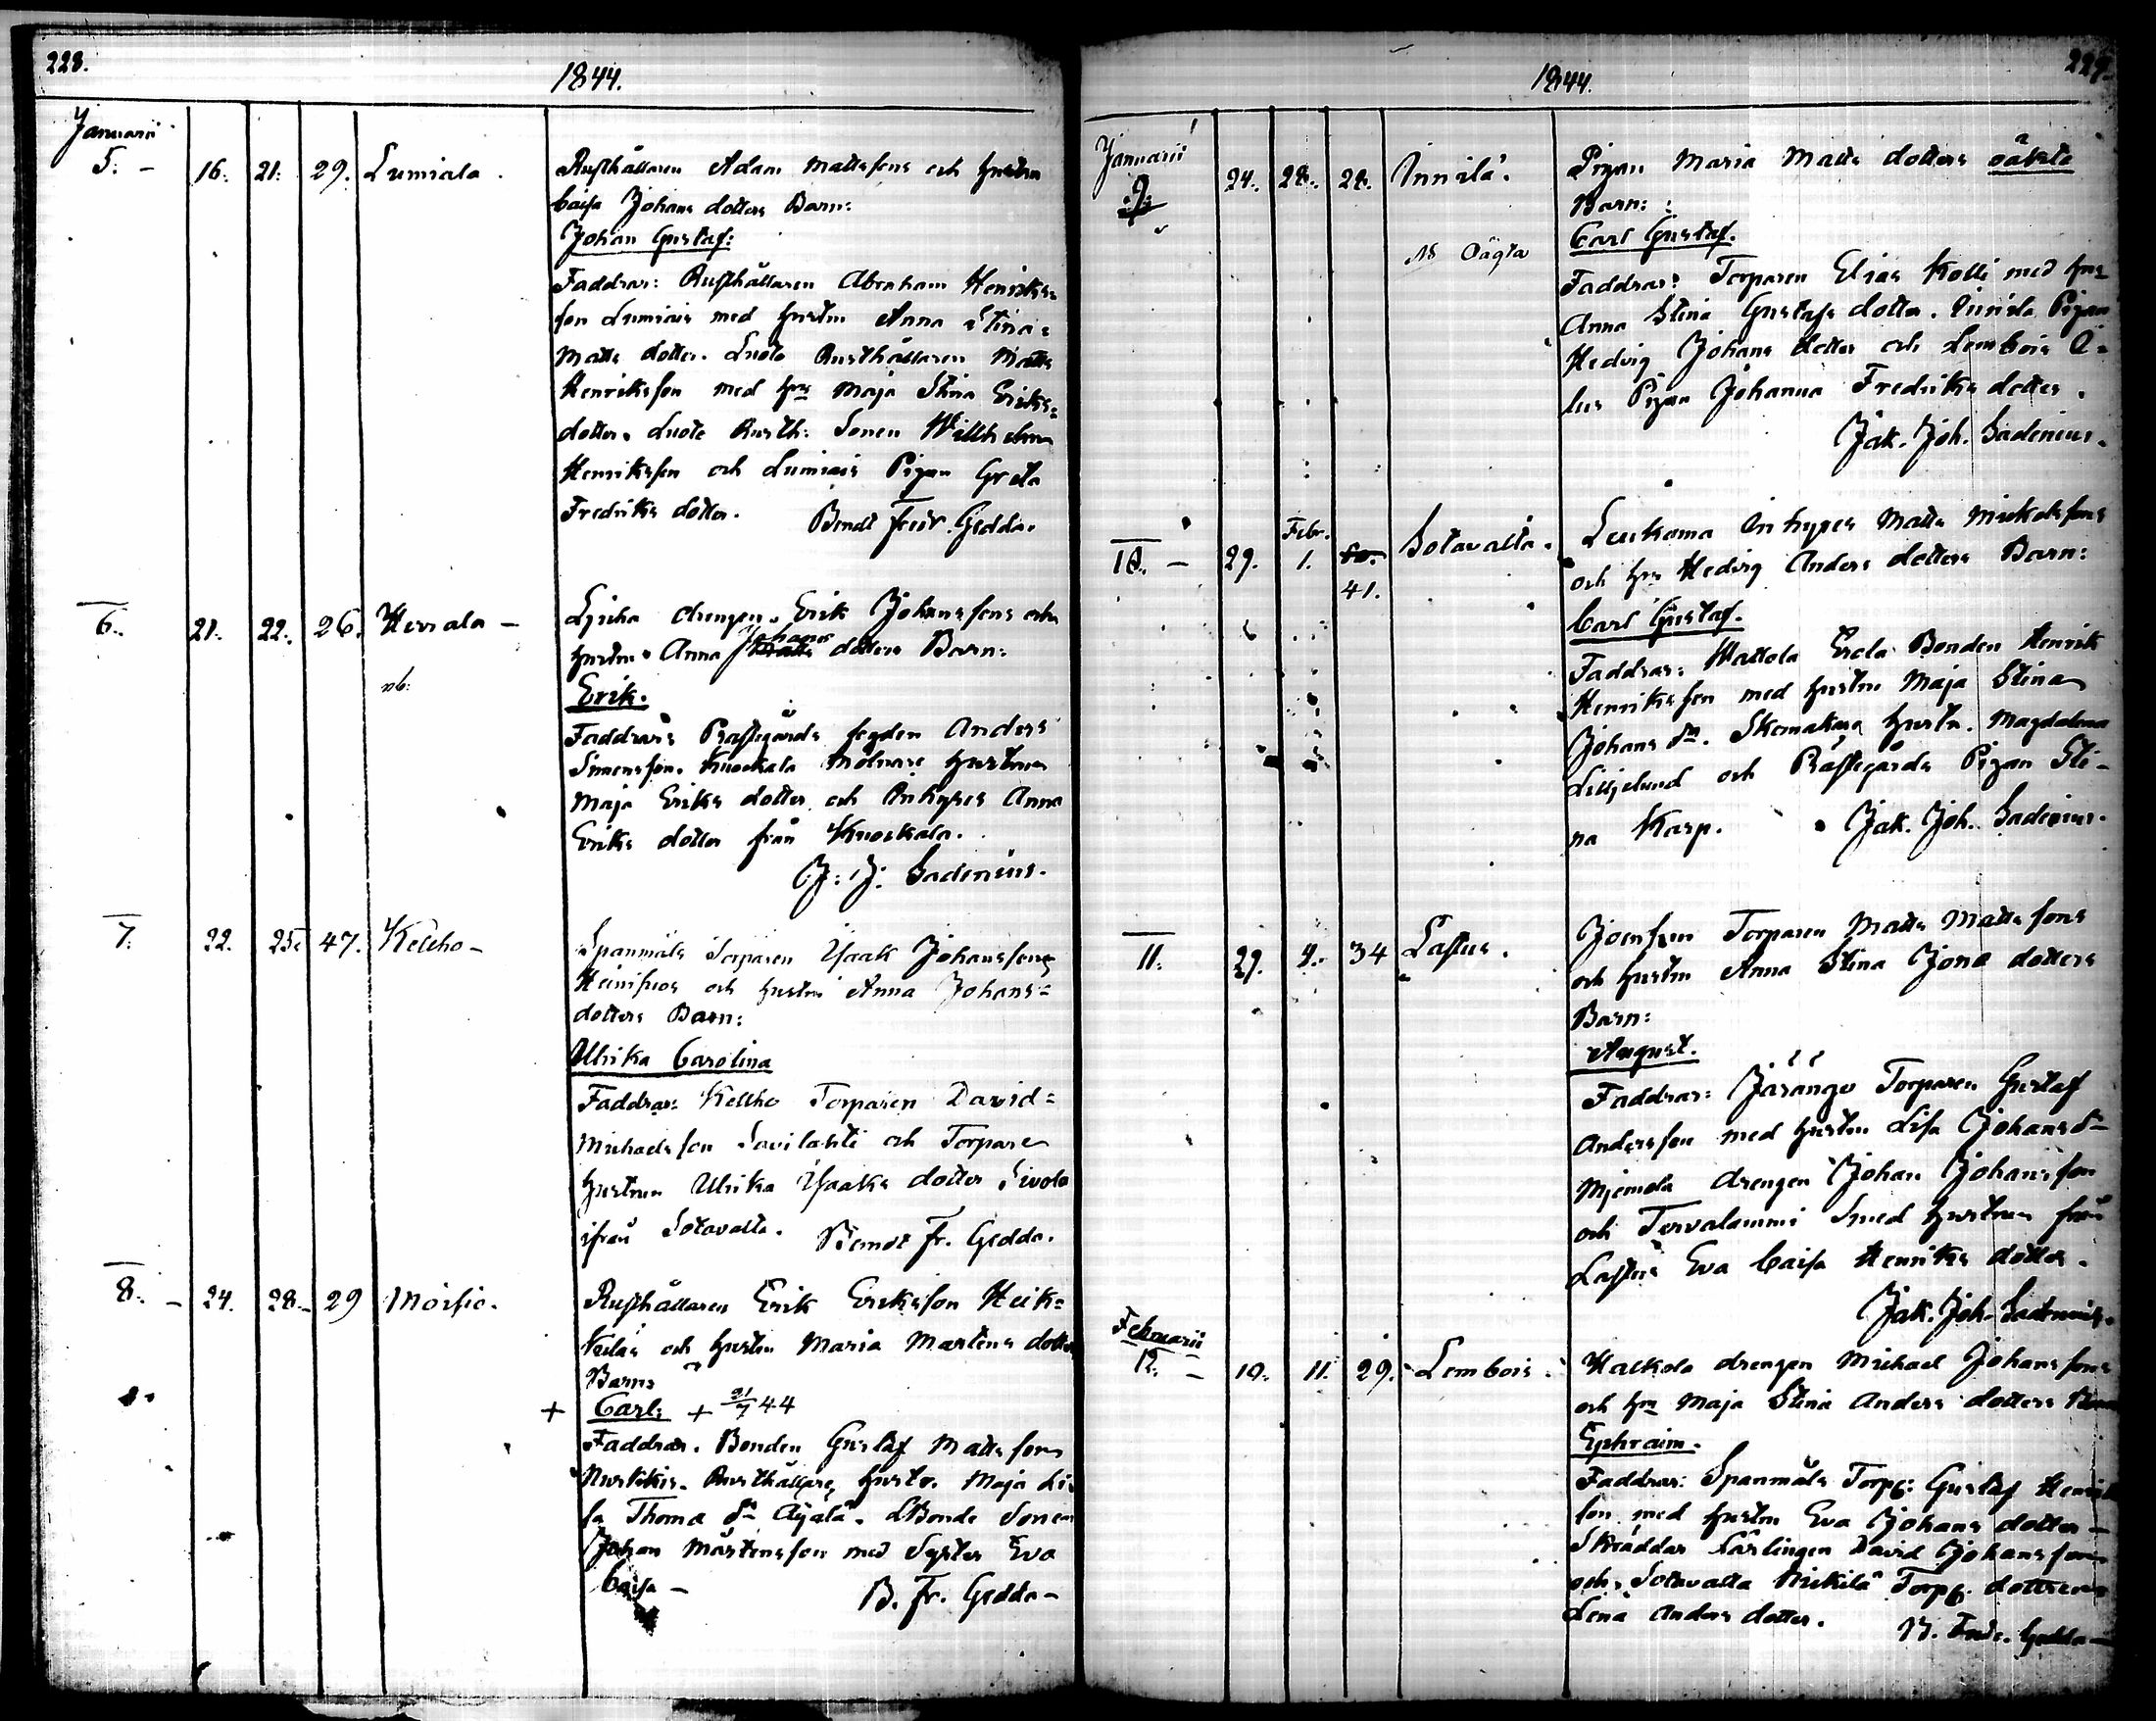 228.
1844.
Januarii
5. - 16. 21. 29. Lumiala. Rusthållaren Adam Mattssons och hustru
Caisa Johans dotters Barn:
Johan Gustaf:
Faddrar: Rusthållaren Abraham Henriks-
son Lumiais med hustru Anna Stina
Matts dotter. Luoto Rusthållaren Matts
Henriksson med hru Maja Stina Eriks-
dotter. Luoto Rusth: Sonen Willhelm
Henriksson och Lumiais Pigan Greta
Fredriks dotter. Bendt Fredr. Gedda.
6. 21. 22. 26. Herrala -
drengen Erik Johanssons och
hustru Anna Johans dotters Barn:
nb:
Erik.
Faddrar: Prästgårds fogden Anders
Simonsson. Kuokkala Mölnare hustrun
Maja Eriks dotter och Inhyses Anna
Eriks dotter från Kuokkala.
J: J. Sadenius.
7. 22. 25. 47. Kelho - Spanmäls Torparen Isaak Johanssons
och hustru Anna Johans-
dotters Barn:
Ulrika Carolina
Faddrar: Kelho Torparen David
Michaelsson Savilahti och Torpare
hustrun Ulrika Isaaks dotter Sivola
ifrån Sotavalta. Berndt Fr. Gedda.
8. - 24. 28. - 29 Moisio. Rusthållaren Erik Eriksson Heik-
kiläs och hustru Maria Mårtens dotters
Barn:
+ Carl: + 21/7 44
Faddrar. Bonden Gustaf Mattsson
Rusthållare hustr. Maja Li-
sa Thomæ dr Äyälä. Bonde Sonen
Johan Mårtensson med Syster Eva
Caisa - B. Fr. Gedda -
229.
1844.
Januarii
9. 24. 28. 28. Innilä. Pigan Maria Matts dotters oäkta
Barn:
Carl Gustaf.
NB Oägta
Faddrar: Torparen Elias Kolli med hru
Anna Stina Gustafs dotter. Innilä Pigan
Hedvig Johans dotter och Lembois
Pigan Johanna Fredriks dotter.
Jak. Joh. Sadenius.
Febr.
10. - 29. 1. 41. Sotavalta. Leukama Inhyses Matts Mickelssons
och hru Hedvig Anders dotters Barn:
Carl Gustaf.
Faddrar: Mattola Erola Bonden Henrik
Henriksson med hustru Maja Stina
Johans dr. Skomakare hustr. Magdalena
Liljelund och Prästgårds Pigan Sti-
na Karp. Jak. Joh. Sadenius.
11. 29. 4. 34 Lastus. Torparen Matts Mattssons
och hustru Anna Stina Jonæ dotters
Barn:
August.
Faddrar: Torparen Gustaf
Andersson med hustru Lisa Johans dr
drengen Johan Johansson
och Tervalammi Smed hustrun från
Lastus Eva Caisa Henriks dotter.
Jak. Joh. Sadenius.
Februarii
12. - 10. 11. 29. Lembois. Halkola drengen Michael Johanssons
och hru Maja Stina Anders dotters Barn
Ephraim.
Faddrar: Spanmäls Torp: Gustaf Henriks
son med hustru Eva Johans dotter -
Skräddar Lärlingen David Johansson
och Sotavalta Mickilä Torp: dottren
Lena Anders dotter. B. Fredr. Gedda -